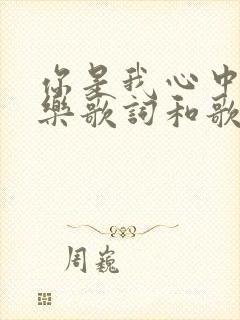 你是我心中
樂歌詞和歌
周巍